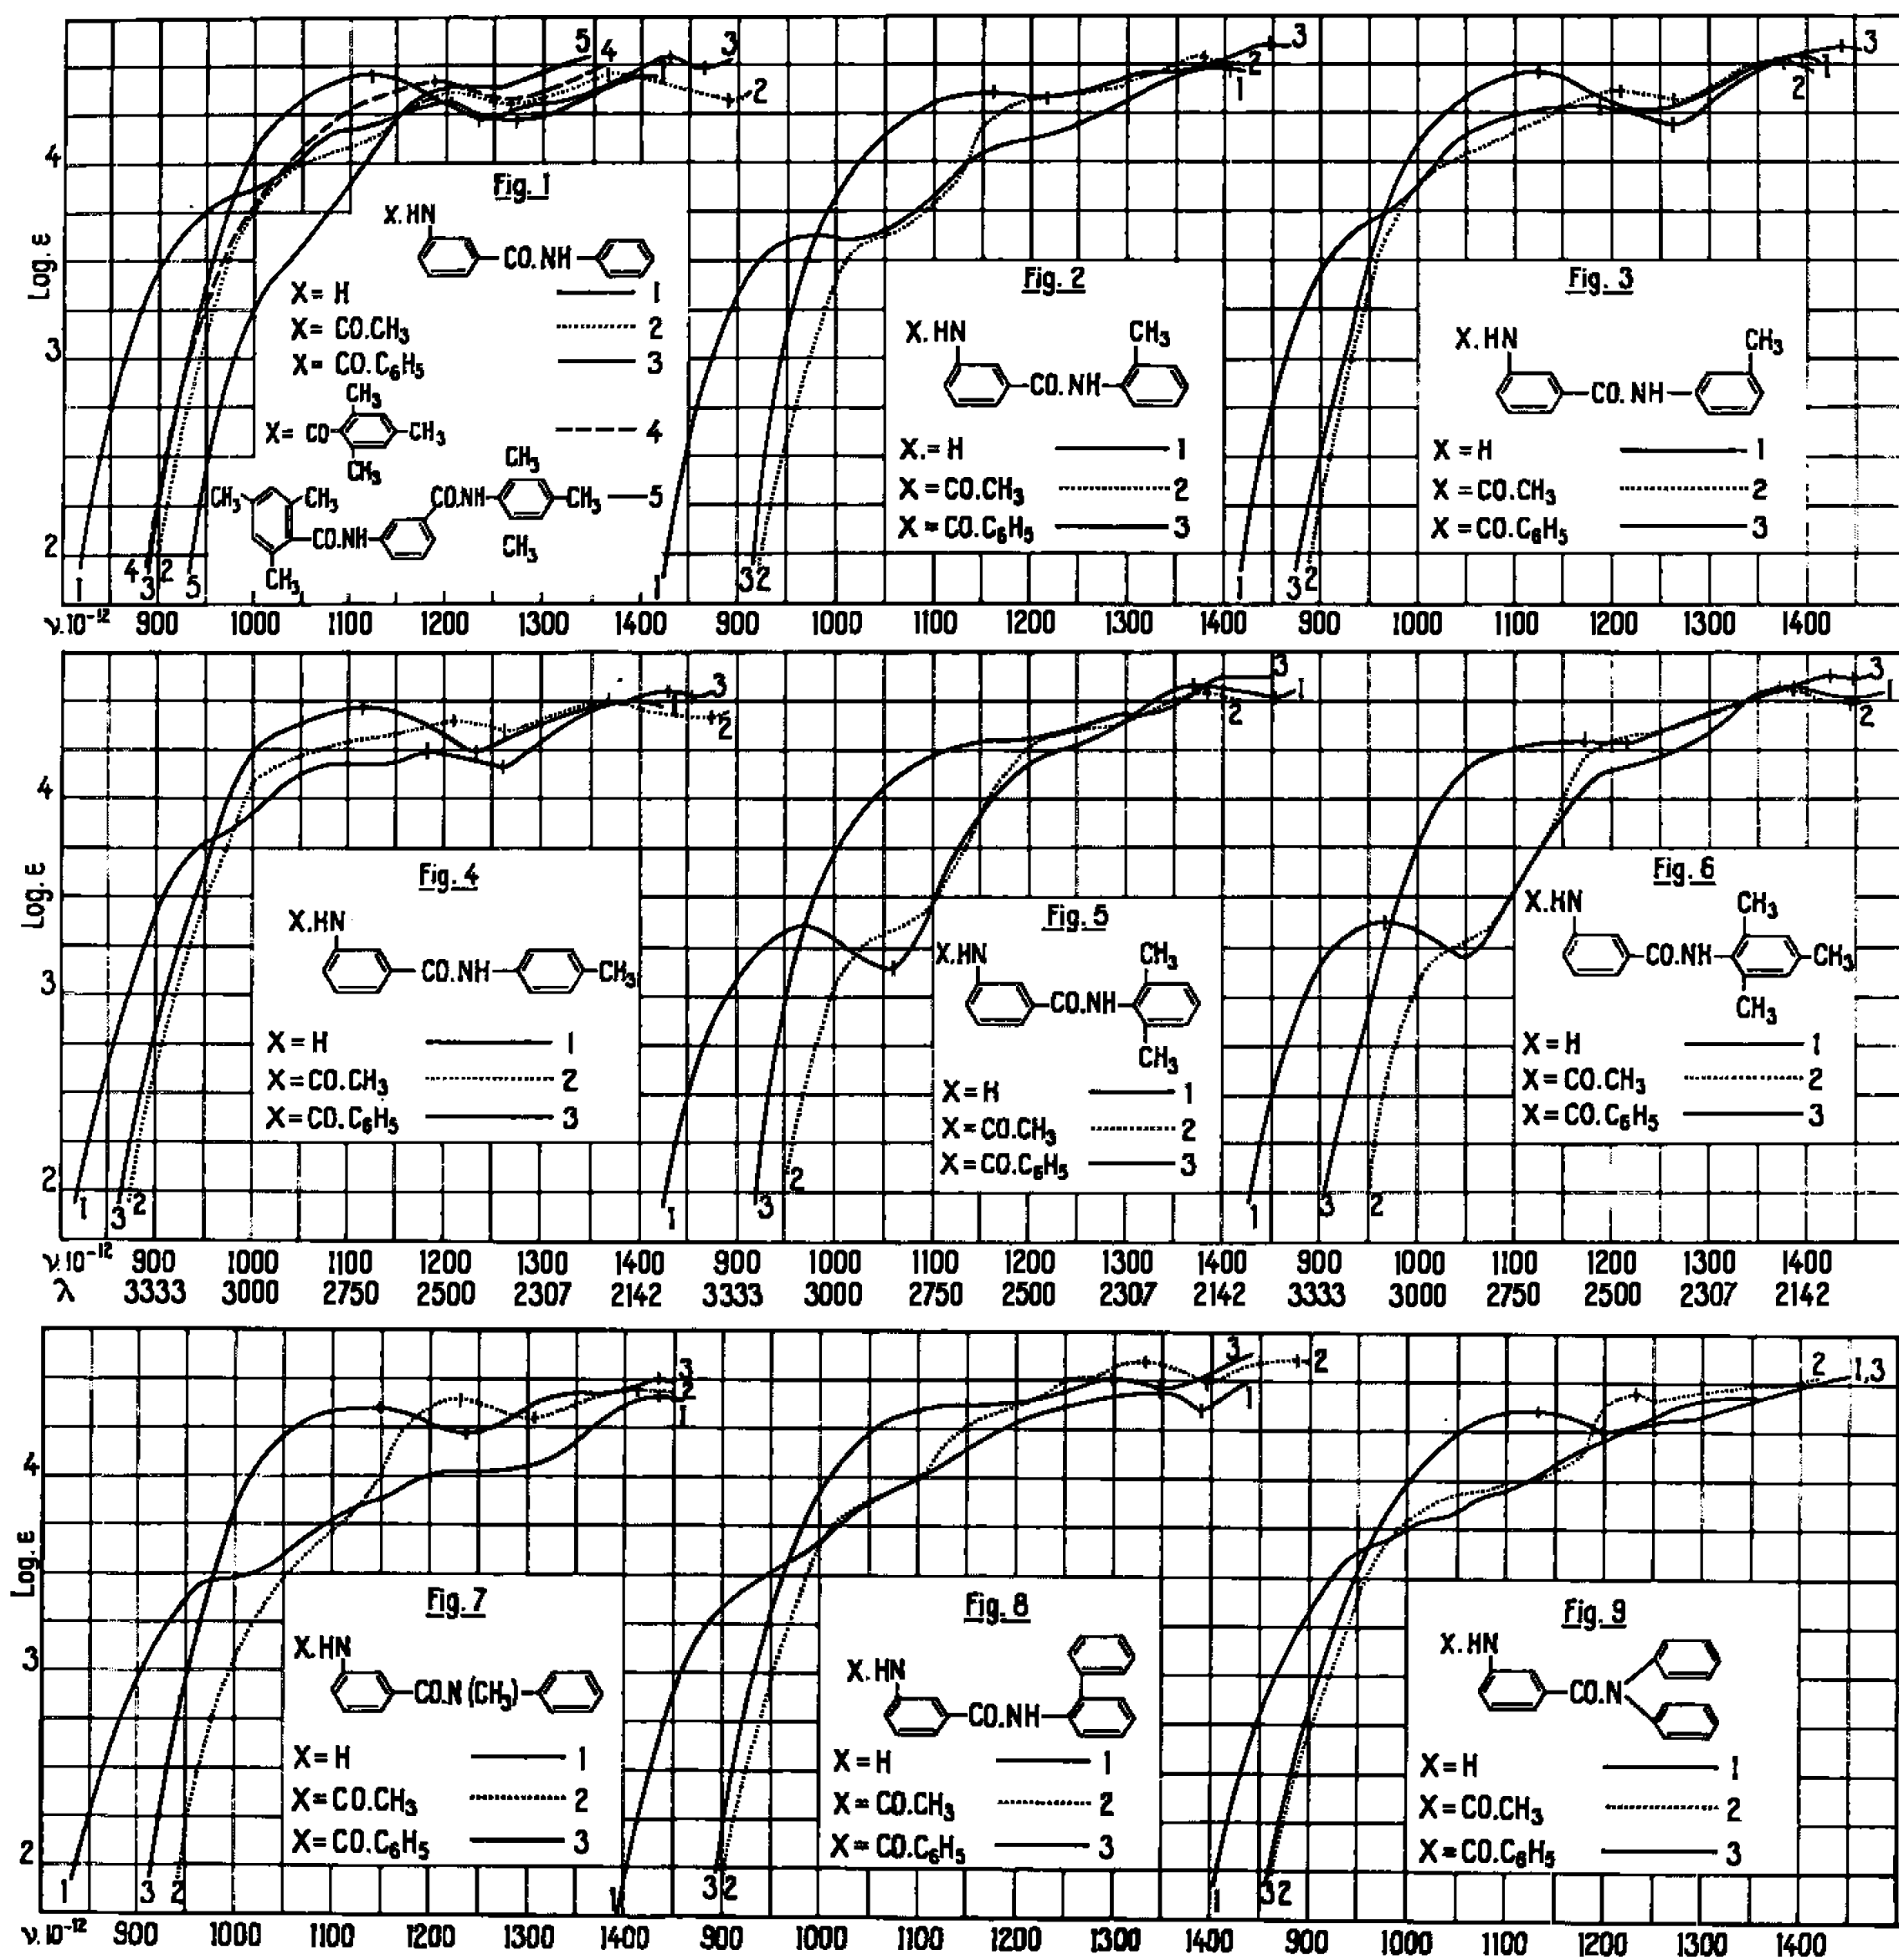 5 4 3
1 2
3
2
1
3
1
2
4
Log. ε
3
2
Fig. 1
X.HN
CO.NH
X = H 1
X = CO.CH₃ 2
X = CO.C₆H₅ 3
CH₃
X = CO CH₃ 4
CH₃
CH₃ CH₃ CO.NH CH₃ CH₃ 5
CO.NH CH₃
CH₃
1 4 3 2 5
Fig. 2
X.HN CH₃
CO.NH
X.= H 1
X = CO.CH₃ 2
X = CO.C₆H₅ 3
1 3 2
Fig. 3
X.HN CH₃
CO.NH
X = H 1
X = CO.CH₃ 2
X = CO.C₆H₅ 3
1 3 2
ν.10⁻¹² 900 1000 1100 1200 1300 1400 900 1000 1100 1200 1300 1400 900 1000 1100 1200 1300 1400
3
1
2
3
1
2
3
1
2
4
Log. ε
3
2
Fig. 4
X.HN
CO.NH CH₃
X = H 1
X = CO.CH₃ 2
X = CO.C₆H₅ 3
1 3 2
Fig. 5
X.HN CH₃
CO.NH
CH₃
X = H 1
X = CO.CH₃ 2
X = CO.C₆H₅ 3
1 3 2
Fig. 6
X.HN CH₃
CO.NH CH₃
CH₃
X = H 1
X = CO.CH₃ 2
X = CO.C₆H₅ 3
1 3 2
ν.10⁻¹² 900 1000 1100 1200 1300 1400 900 1000 1100 1200 1300 1400 900 1000 1100 1200 1300 1400
λ 3333 3000 2750 2500 2307 2142 3333 3000 2750 2500 2307 2142 3333 3000 2750 2500 2307 2142
3
2
1
3 2
1
2 1,3
4
Log. ε
3
2
Fig. 7
X.HN
CO.N (CH₃)
X = H 1
X = CO.CH₃ 2
X = CO.C₆H₅ 3
1 3 2
Fig. 8
X.HN
CO.NH
X = H 1
X = CO.CH₃ 2
X = CO.C₆H₅ 3
1 3 2
Fig. 9
X.HN
CO.N
X = H 1
X = CO.CH₃ 2
X = CO.C₆H₅ 3
1 3 2
ν.10⁻¹² 900 1000 1100 1200 1300 1400 900 1000 1100 1200 1300 1400 900 1000 1100 1200 1300 1400